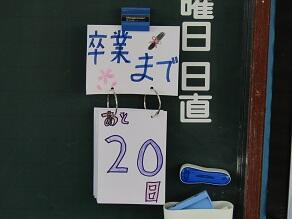 卒業
まで
あと
20
日
曜日
日直